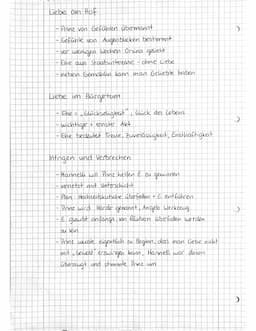 Liebe am Hof
- Prinz von Gefühlen übermannt
- Gefühle von Augenblicken bestimmt
- vor wenigen Wochen Orsina geliebt
- Ehe aus Staatsinteresse - ohne Liebe
- neben Gemahlin kann man Geliebte haben
Liebe im Bürgertum
- Ehe = "Glückseligkeit", Glück des Lebens
- wichtiger + ernster Akt
- Ehe bedeutet Treue, Zuverlässigkeit, Ernsthaftigkeit
Intrigen und Verbrechen
- Marinelli will Prinz helfen E. zu gewinnen
- vernetzt und
- Plan: Hochzeitskutsche überfallen + E. entführen
- Prinz wird Mörder genannt, Angelo Werkzeug
- E. glaubt anfangs, von Räubern überfallen worden
zu sein
- Prinz wusste eigentlich zu Beginn, dass man Liebe nicht
mit erzwingen kann, Marinelli war davon
überzeugt und stimmte Prinz um